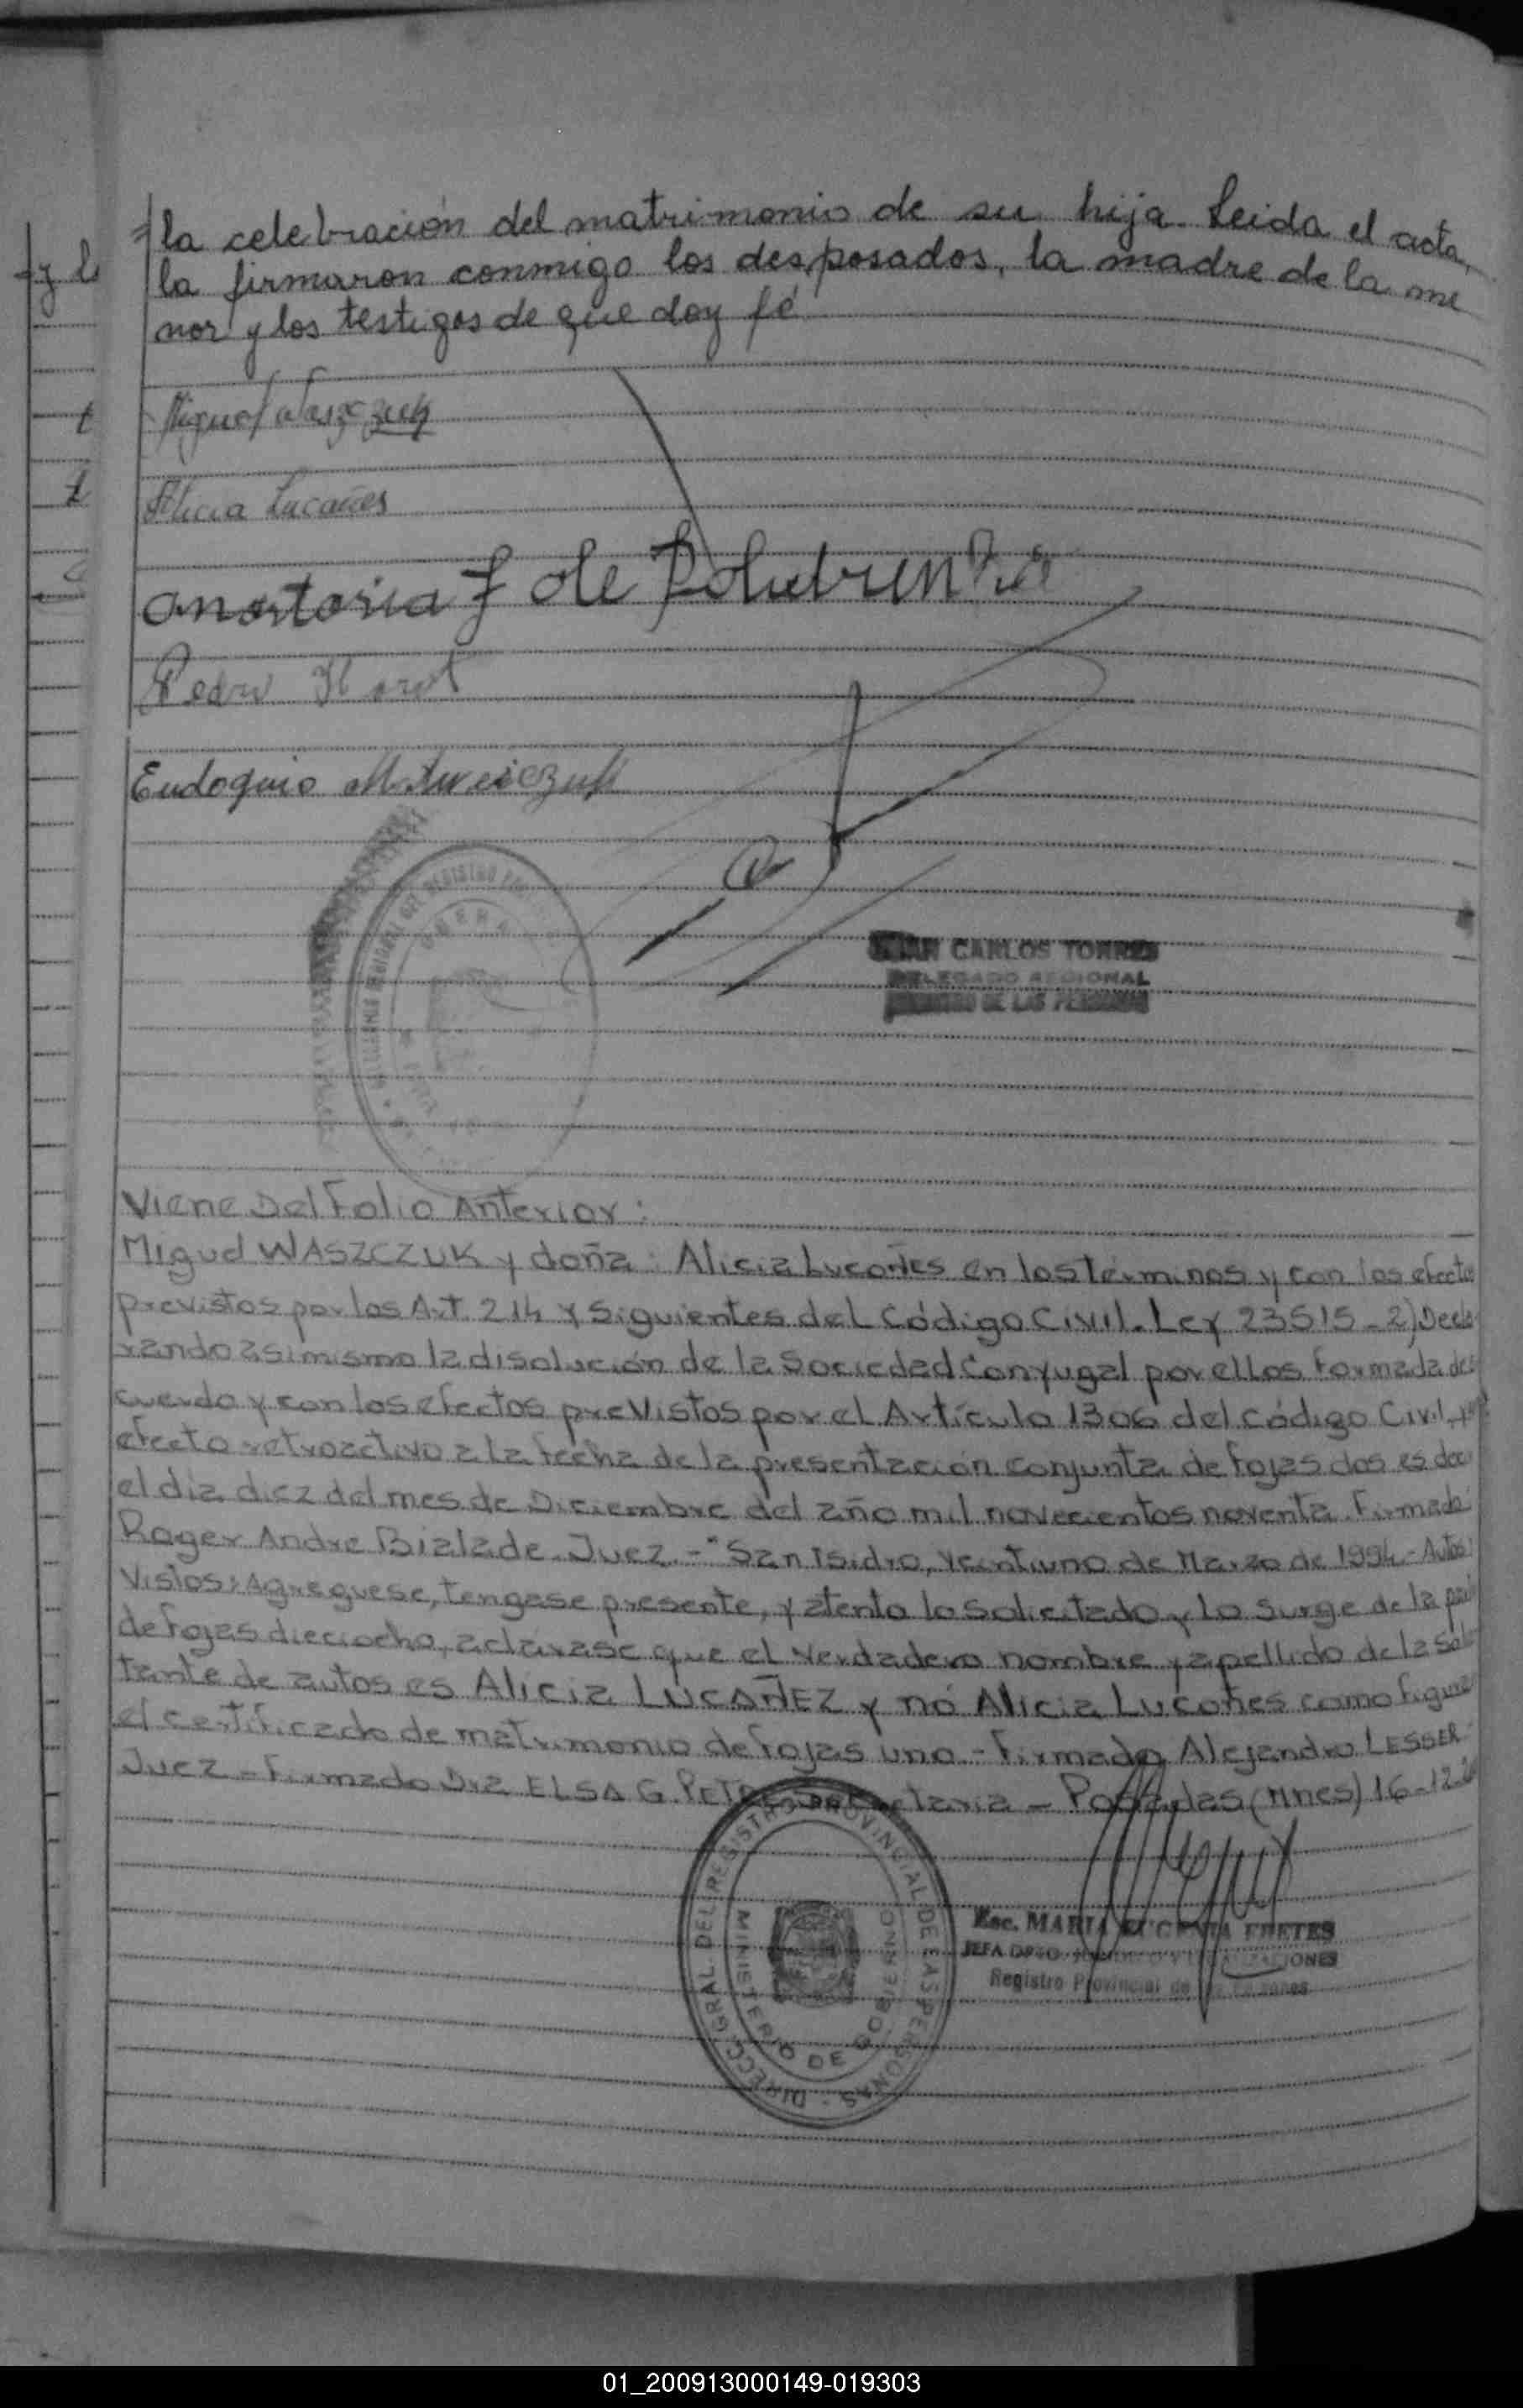 la celebración del matrimonio de su hija. Leida el acta,
la firmaron conmigo los desposados, la madre de la me
nor y los testigos de que doy fé
Miguel Waszczuk
Alicia Lucañes
de
Pedro
Eudoquio
CARLOS TORRES
DELEGADO REGIONAL
DE LAS PERSONAS
Viene Del Folio Anterior:
Miguel WASZCZUK y doña: Alicia Lucoñes en los términos y con los efecto
previstos por los Art. 214 y Siguientes del Código Civil. Ley 23515 - 2) Decla
rando asimismo la disolución de la Sociedad Conyugal por ellos formada de
cuerdo y con los efectos preVistos por el Artículo 1306 del Código Civil,
efecto retroactivo a la fecha de la presentación conjunta de fojas dos es dec
el día diez del mes de Diciembre del año mil novecientos noventa. Firmado
Roger Andre Bialade. Juez - "San Isidro, Veintiuno de Marzo de 1994 - Autos
Vistos: Agreguese, tengase presente, y atento lo solicitado y lo surge de la
de fojas dieciocho, aclarase que el verdadero nombre y apellido de la Sol
tante de autos es Alicia LUCAÑEZ y nó Alicia Lucoñes como figura
el certificado de matrimonio de fojas uno - Firmado Alejandro LESSER
Juez - Firmado Dra ELSA G. Secretaria - Posadas (Mnes) 16-12-
DIRECC. GRAL. DEL REGISTRO PROVINCIAL DE LAS PERSONAS -
MINISTERIO DE GOBIERNO
Esc. MARIA EUGENIA FRETES
JEFA DPTO.
Registro Provincial de las Personas
01_200913000149-019303